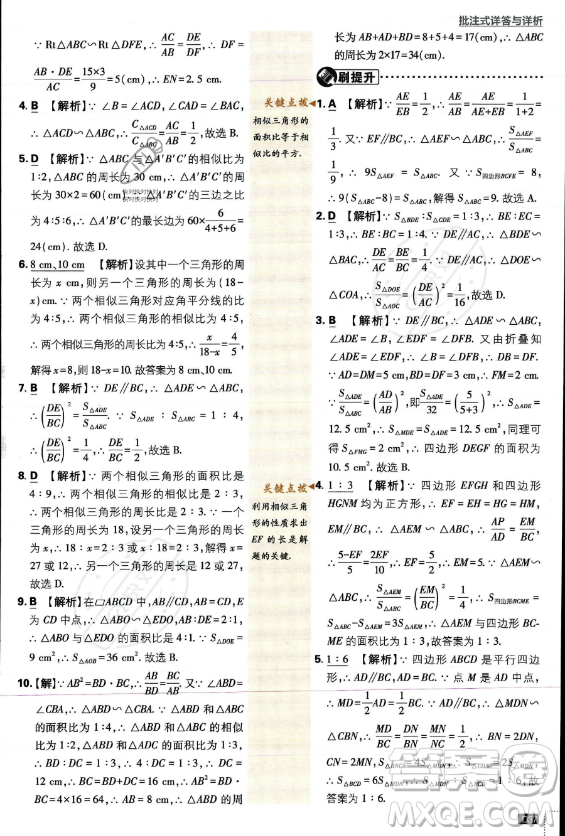 批注式详答与详析
∵ Rt△ABC∽Rt△DFE,∴ DF =
AB·DE/AC = 15×3/9 = 5(cm),∴ EN=2.5 cm.
4. B 【解析】∵ ∠B=∠ACD,∠CAD=∠BAC,
∴ △ACD∽△ABC,∴ C△ACD/C△ABC = AC/AB = 1/2,故选 B.
5. D 【解析】∵ △ABC 与△A'B'C'的相似比为
1:2,△ABC 的周长为 30 cm,∴ △A'B'C'的周
长为 30×2=60(cm).∵ △A'B'C'的三边之比
为 4:5:6,∴ △A'B'C'的最长边为 60×6/(4+5+6) =
24(cm).故选 D.
6. 8 cm,10 cm 【解析】设其中一个三角形的周
长为 x cm,则另一个三角形的周长为(18-
x)cm.∵ 两个相似三角形对应角平分线的比
为 4:5,∴ 两个相似三角形的相似比为
4:5,∴ 两个相似三角形的周长比为 4:5,∴ x/(18-x) = 4/5,
解得 x=8,∴ 18-x=10.故答案为 8 cm,10 cm.
7. B 【解析】∵ DE∥BC,∴ △ADE∽△ABC,
∴ (DE/BC)² = S△ADE/S△ABC.∵ S△ADE:S△ABC = 1:4,
∴ (DE/BC)² = 1/4,∴ DE/BC = 1/2.故选 B.
8. D 【解析】∵ 两个相似三角形的面积比是
4:9,∴ 两个相似三角形的相似比是 2:3,
∴ 两个相似三角形的周长比是 2:3.∵ 一个
三角形的周长为 18,∴ 另一个三角形的周长
为 12 或 27,∴ 另一个三角形的周长是 12 或
27.故选 D.
9. B 【解析】在▱ABCD 中,∵ AB∥CD,AB=CD,E
为 CD 中点,∴ △ABO∽△EDO,AB=CD=2DE,
∴ △ABO 与△EDO 的面积比是 4:1.∵ S△DOE =
9 cm²,∴ S△AOB=36 cm².故选 B.
10.【解】∵ AB²=BD·BC,∴ AB/BD = BC/AB.∵ ∠ABD=
∠CBA,∴ △ABD∽△CBA.∵ △ABD 与△CBA
的面积比为 1:4,∴ △ABD 与△CBA 的相似
比为 1:2,∴ AB=2BD=8 cm,AC=2AD=10 cm,
∴ BC=2AB=16 cm,∴ △ABC 的周
长为 AB+AD+BD=8+5+4=17(cm),∴ △ABC
的周长为 2×17=34(cm).
关键点拨
相似三角形的
面积比等于相
似比的平方.
关键点拨
利用相似三角
形的性质求出
EF 的长是解
题的关键.
刷提升
1. A 【解析】∵ AE/EB = 1/2,∴ AE/AB = AE/(AE+EB) = 1/(1+2) =
1/3.又∵ EF∥BC,∴ △AEF∽△ABC,∴ S△AEF/S△ABC =
1/9,∴ 9S△AEF=S△ABC.又∵ S四边形BCFE=8,
∴ 9(S△ABC-8)=S△ABC,解得 S△ABC=9.故选 A.
2. D 【解析】∵ S△BDE:S△CDE=1:3,∴ BE:EC=
1:3,∴ BE:BC=1:4.∵ DE∥AC,∴ △BDE∽
△BAC,∴ DE/AC = BE/BC = 1/4.∵ DE∥AC,∴ △DOE∽
△COA,∴ S△DOE/S△AOC = (DE/AC)² = 1/16.故选 D.
3. B 【解析】∵ DE∥BC,∴ △ADE∽△ABC,
∠ADE=∠B,∠EDF=∠BFD.又由折叠知
∠ADE=∠EDF,∴ ∠B=∠BFD,∴ BD=DF.
∵ AD=DM=5 cm,DF=BD=3 cm,∴ AB=8 cm.
∵ S△ADE/S△ABC = (AD/AB)²,即 S△ADE/32 = (5/(5+3))²,∴ S△ADE=
12.5 cm²,∴ S△DEM=12.5 cm²,同理可
得 S△FMG=2 cm²,∴ 四边形 DEGF 的面积为
10.5 cm².故选 B.
4. 1:3 【解析】∵ 四边形 EFGH 和四边形
HGNM 均为正方形,∴ EF=EH=HG=HM,
EM∥BC,∴ △AEM∽△ABC,∴ AP/AD = EM/BC,
∴ (5-EF)/5 = 2EF/10,∴ EF=5/2,∴ EM=5.
∵ △AEM∽△ABC,∴ S△AEM/S△ABC = (EM/BC)² = 1/4,
∴ S四边形BCME=S△ABC-S△AEM=3S△AEM,
∴ △AEM 的面积与四边形 BC-
ME 的面积比为 1:3,故答案为 1:3.
5. 1:6 【解析】∵ 四边形 ABCD 是平行四边
形,∴ AD∥BC,AD=BC.∵ 点 M 是 AD 的中点,
∴ MD=1/2 AD=1/2 BC.∵ MD∥BC,∴ △MDN∽
△CBN,∴ MD/BC = MN/CN = DN/BN = 1/2,∴ BN=2DN,
CN=2MN,
故答案为 1:6.